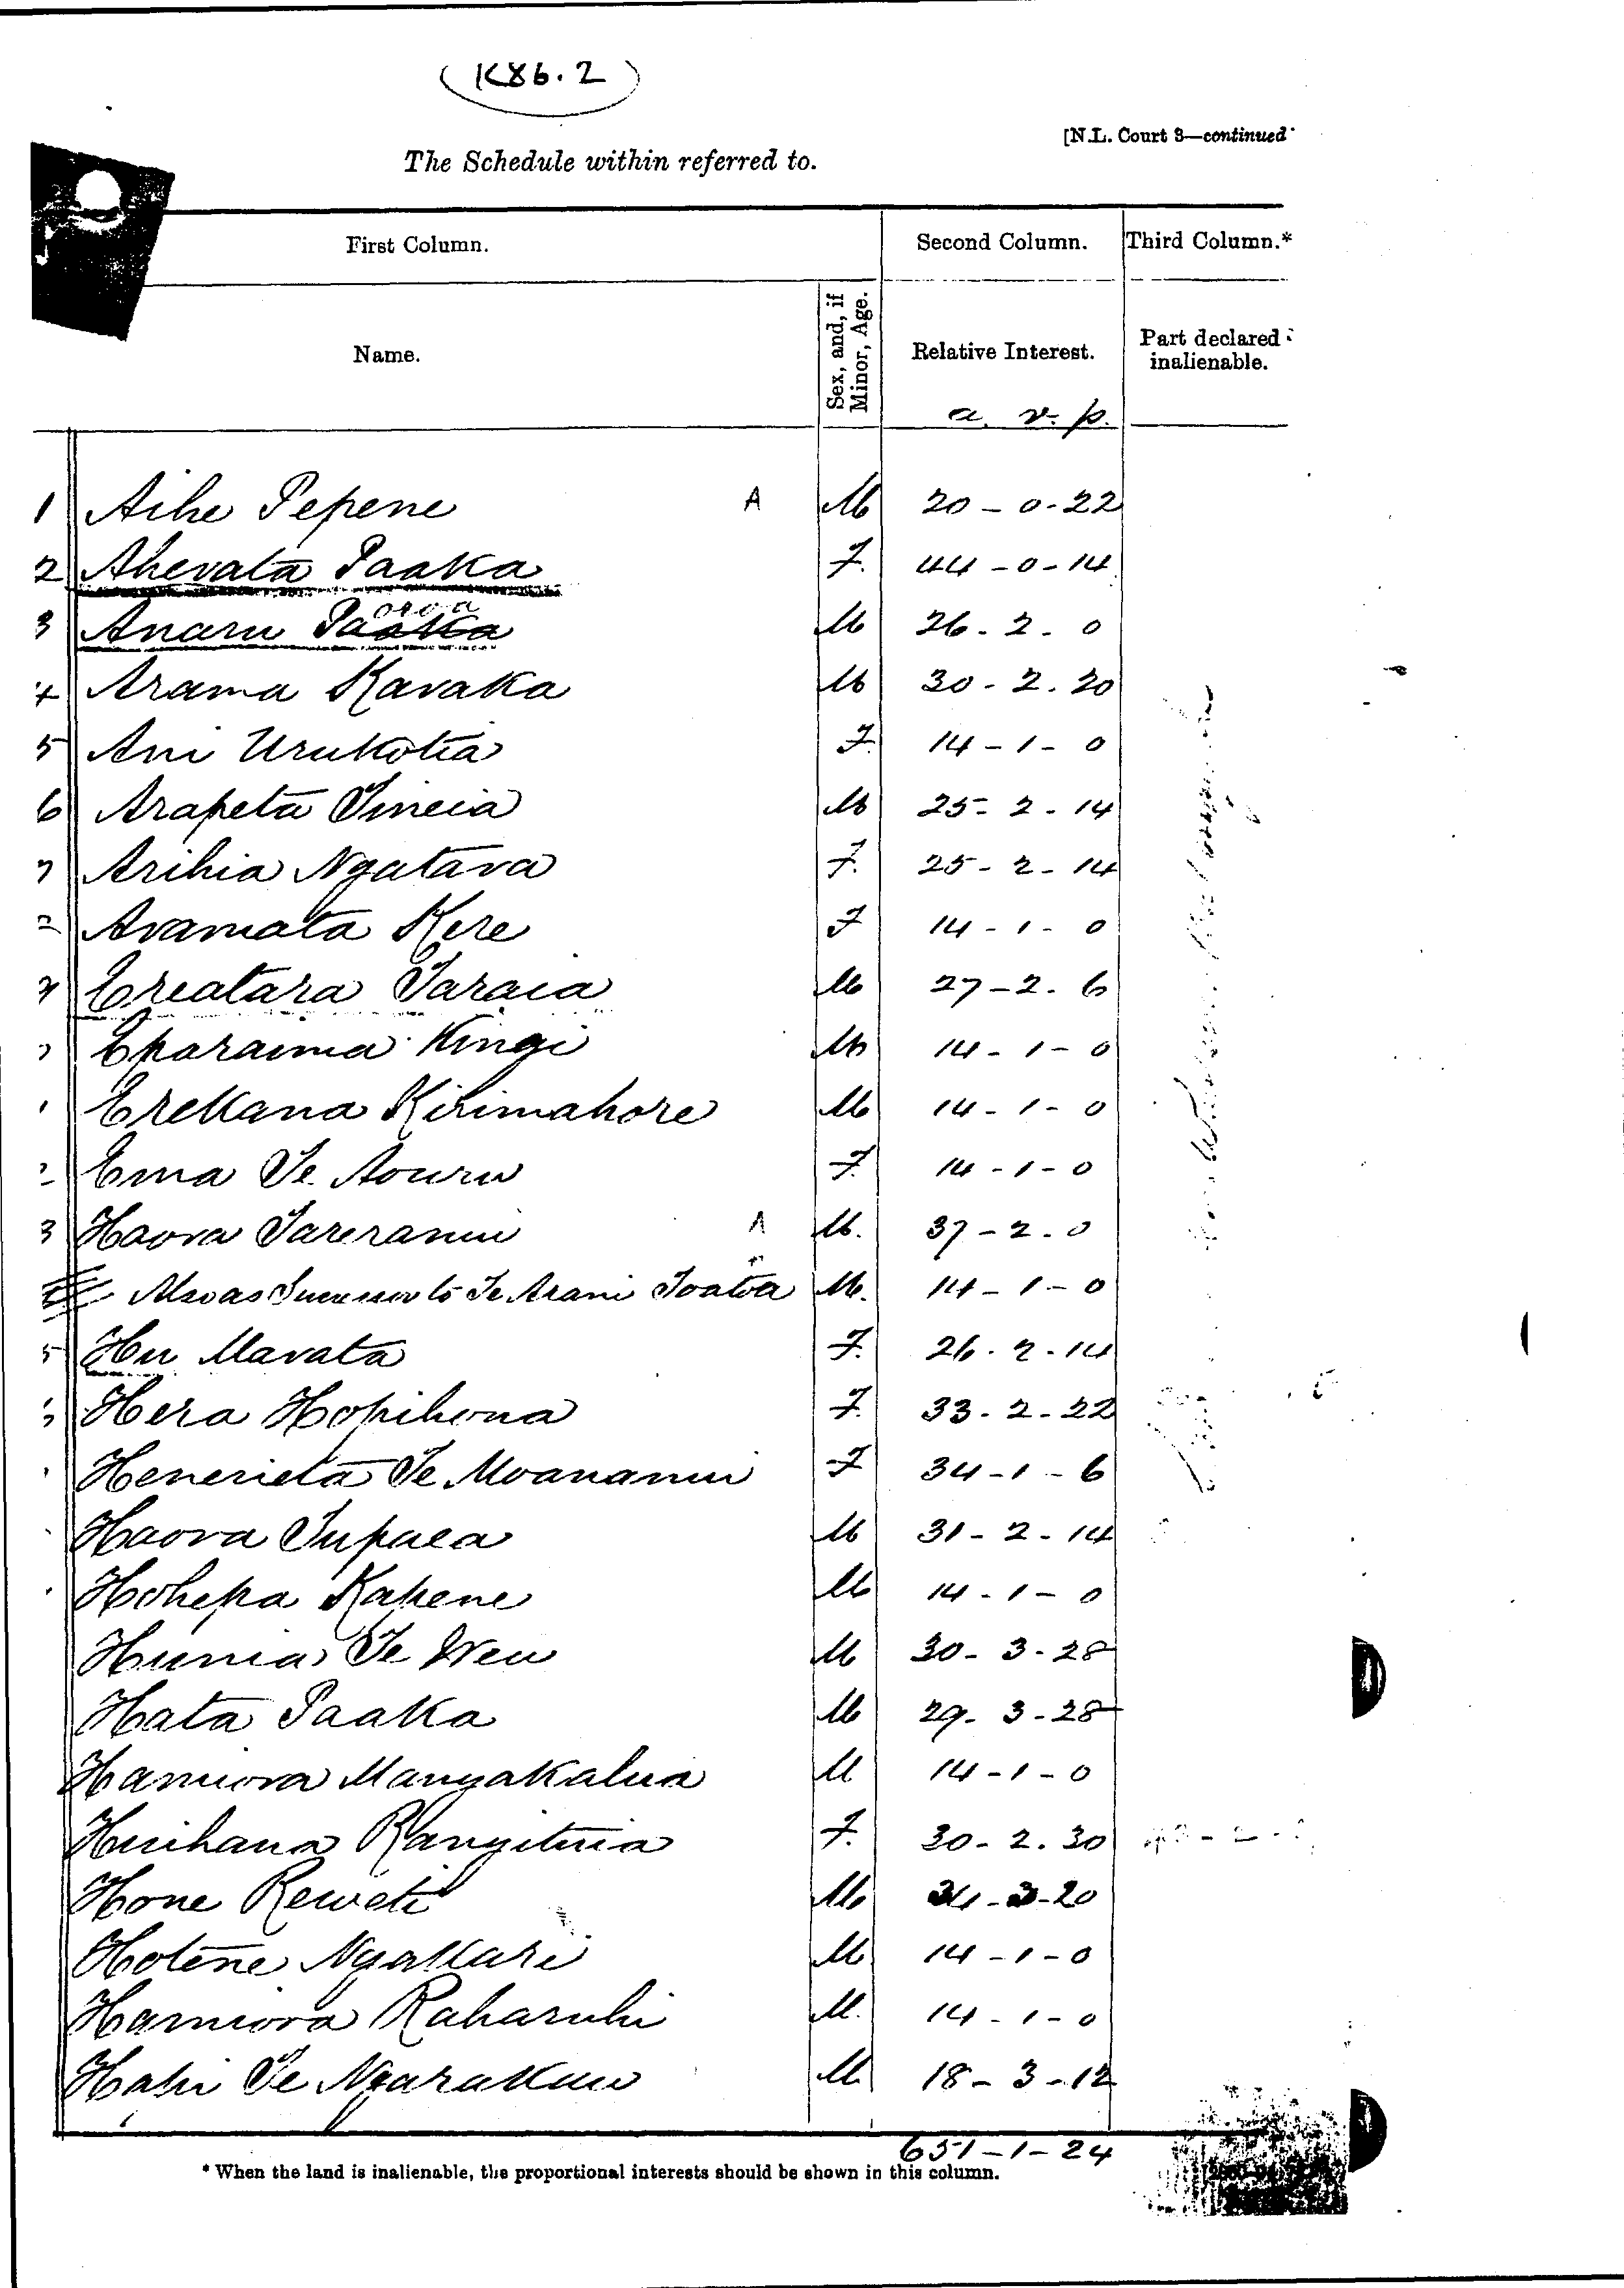 (K86.2)
[N.L. Court 3—continued
The Schedule within referred to.
First Column. Second Column. Third Column.*
Name. Sex, and, if Minor, Age. Relative Interest. Part declared inalienable.
a. r. p.
1 Aihe Pepene A M 20 - 0 - 22
2 Aherata Paaka F. 44 - 0 - 14
oroa
3 Anaru Paaka M 26 - 2 - 0
4 Arama Karaka M 30 - 2 - 20
5 Ani Urukotia F. 14 - 1 - 0
6 Arapeta Timeia M 25 - 2 - 14
7 Arihia Ngatara F. 25 - 2 - 14
Aramata Kere F 14 - 1 - 0
Ereatara Taraia M 27 - 2 - 6
Eparaima Kingi M 14 - 1 - 0
Erekana Kirimahore M 14 - 1 - 0
Ema Te Aouru F. 14 - 1 - 0
3 Haora Tareranui A M. 37 - 2 - 0
Successor to Te Arani Toatoa M. 14 - 1 - 0
5 Hu Marata F. 26 - 2 - 14
Hera Hopihona F. 33 - 2 - 22
Henerieta Te Moananui F 34 - 1 - 6
Haora Tupaea M 31 - 2 - 14
Hohepa Kapene M 14 - 1 - 0
Hunia Te Weu M 30 - 3 - 28
Hata Paaka M 29 - 3 - 28
Hamuora Mangakahia M 14 - 1 - 0
Huihana Rangituia F. 30 - 2 - 30
Hone Reweti M 34 - 3 - 20
Hotene Ngakuri M 14 - 1 - 0
Hamiora Raharuhi M. 14 - 1 - 0
Hapi Te Ngarukau M 18 - 3 - 12
651 - 1 - 24
* When the land is inalienable, the proportional interests should be shown in this column.